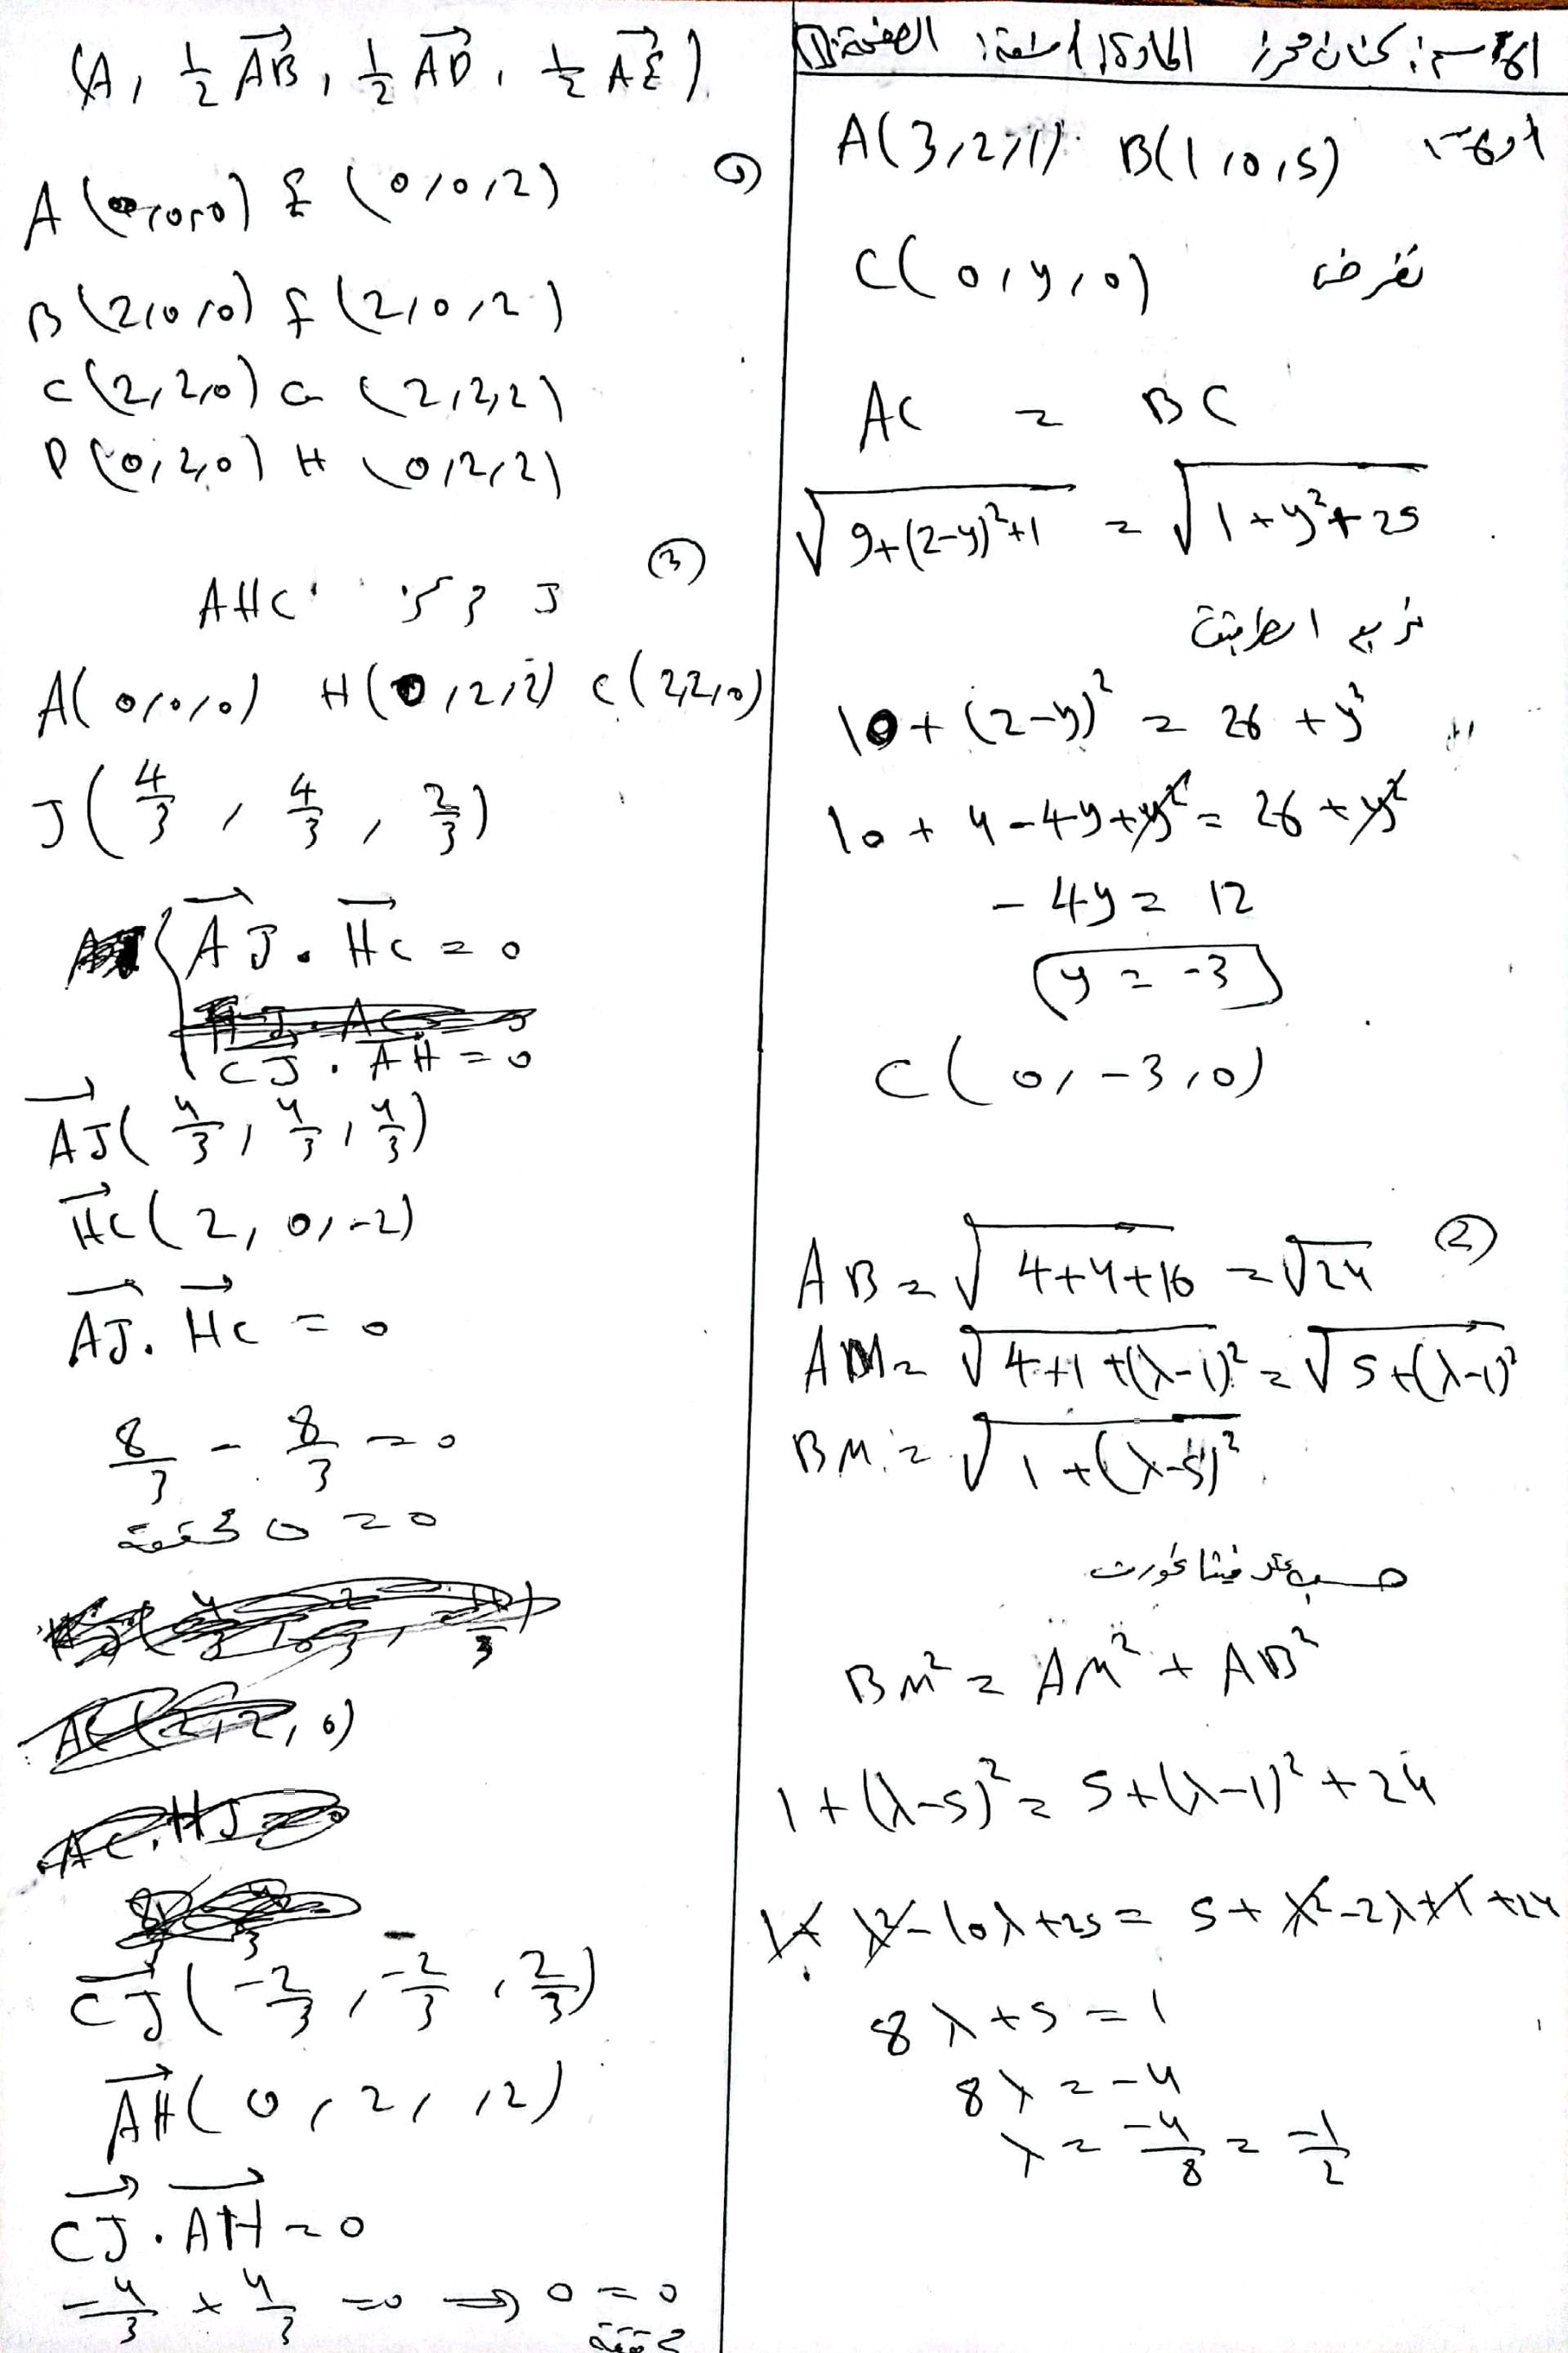 الاسم: كنان محرز المادة: أشعة الصفحة: 1
A(3,2,1) B(1,0,5)
نفرض C(0,y,0)
AC = BC
√(9+(2-y)²+1) = √(1+y²+25)
نربع الطرفين
10+(2-y)² = 26+y²
10+4-4y+y² = 26+y²
-4y = 12
y = -3
C(0,-3,0)
② AB = √(4+4+16) = √24
AM = √(4+1+(λ-1)²) = √(5+(λ-1)²)
BM = √(1+(λ-5)²)
حسب عكس فيثاغورث
BM² = AM² + AB²
1+(λ-5)² = 5+(λ-1)²+24
1+λ²-10λ+25 = 5+λ²-2λ+1+24
8λ+5 = 1
8λ = -4
λ = -4/8 = -1/2
(A, ½AB, ½AD, ½AE)
① A(0,0,0) E(0,0,2)
B(2,0,0) F(2,0,2)
C(2,2,0) G(2,2,2)
D(0,2,0) H(0,2,2)
③
J AHC
A(0,0,0) H(0,2,2) C(2,2,0)
J(4/3, 4/3, 2/3)
AJ . HC = 0
CJ . AH = 0
AJ(4/3, 4/3, 4/3)
HC(2,0,-2)
AJ . HC = 0
8/3 - 8/3 = 0
0 = 0 محققة
CJ(-2/3, -2/3, 2/3)
AH(0,2,2)
CJ . AH = 0
-4/3 + 4/3 = 0 ⇒ 0 = 0
محققة